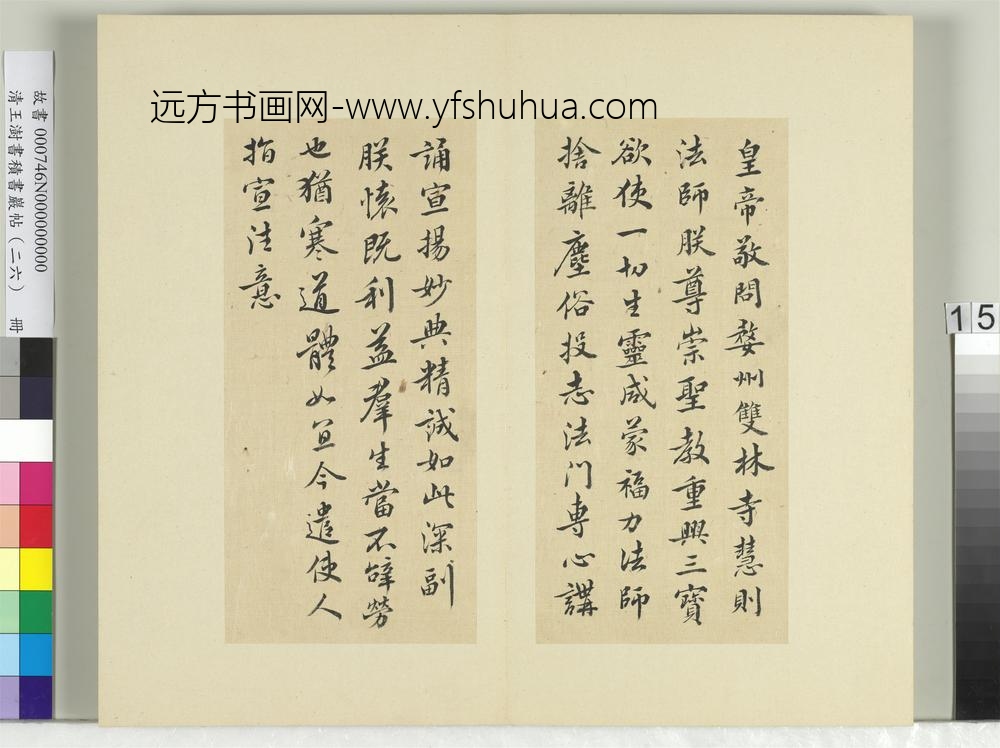 远方书画网-www.yfshuhua.com
皇帝敬問婺州雙林寺慧則
法師朕尊崇聖教重興三寶
欲使一切生靈咸蒙福力法師
捨離塵俗投志法門專心講
誦宣揚妙典精誠如此深副
朕懷既利益羣生當不辭勞
也猶寒道體如宜今遣使人
指宣往意
故書 000746N000000000
清王澍書積書巖帖(二六) 冊
15